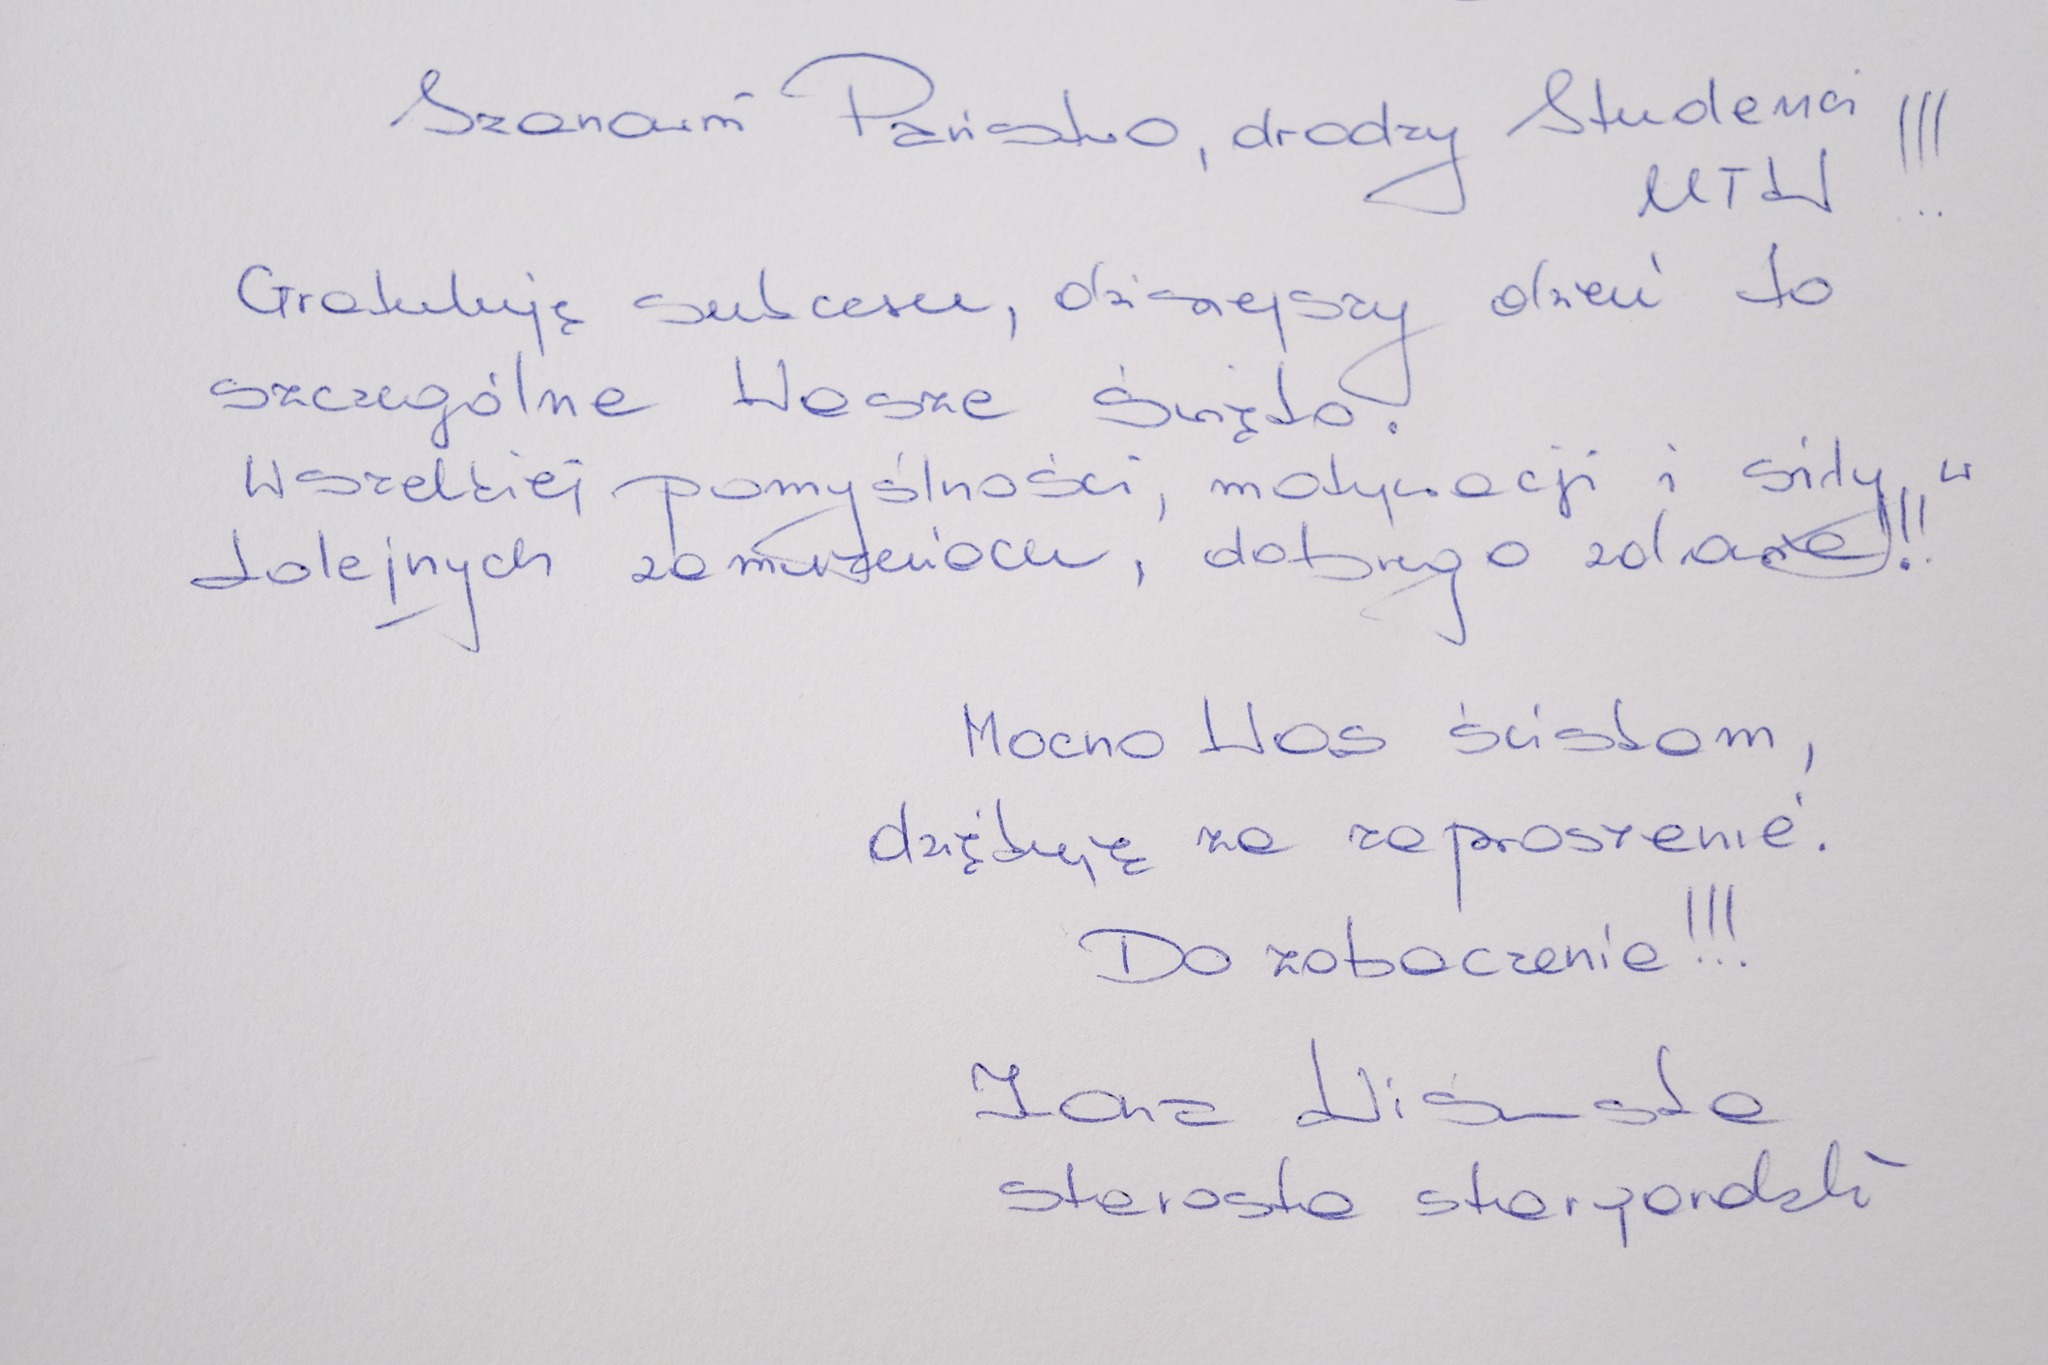 Szanowni Państwo, drodzy Studenci !!!
UTW
Gratuluję sukcesu, dzisiejszy dzień to
szczególne Wasze święto.
Wszelkiej pomyślności, motywacji i siły w
kolejnych zamierzeniach, dobrego zdrowia!!!
Mocno Was ściskam,
dziękuję za zaproszenie.
Do zobaczenia!!!
Wiśniewska
starosta stargardzki